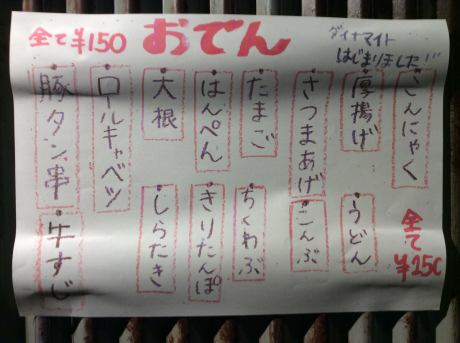 全て¥150
おでん
ダイナマイト
はじまりました!!!
こんにゃく
厚揚げ
うどん
さつまあげ
こんぶ
たまご
ちくわぶ
はんぺん
きりたんぽ
大根
しらたき
ロールキャベツ
豚タン串
牛すじ
全て
¥150